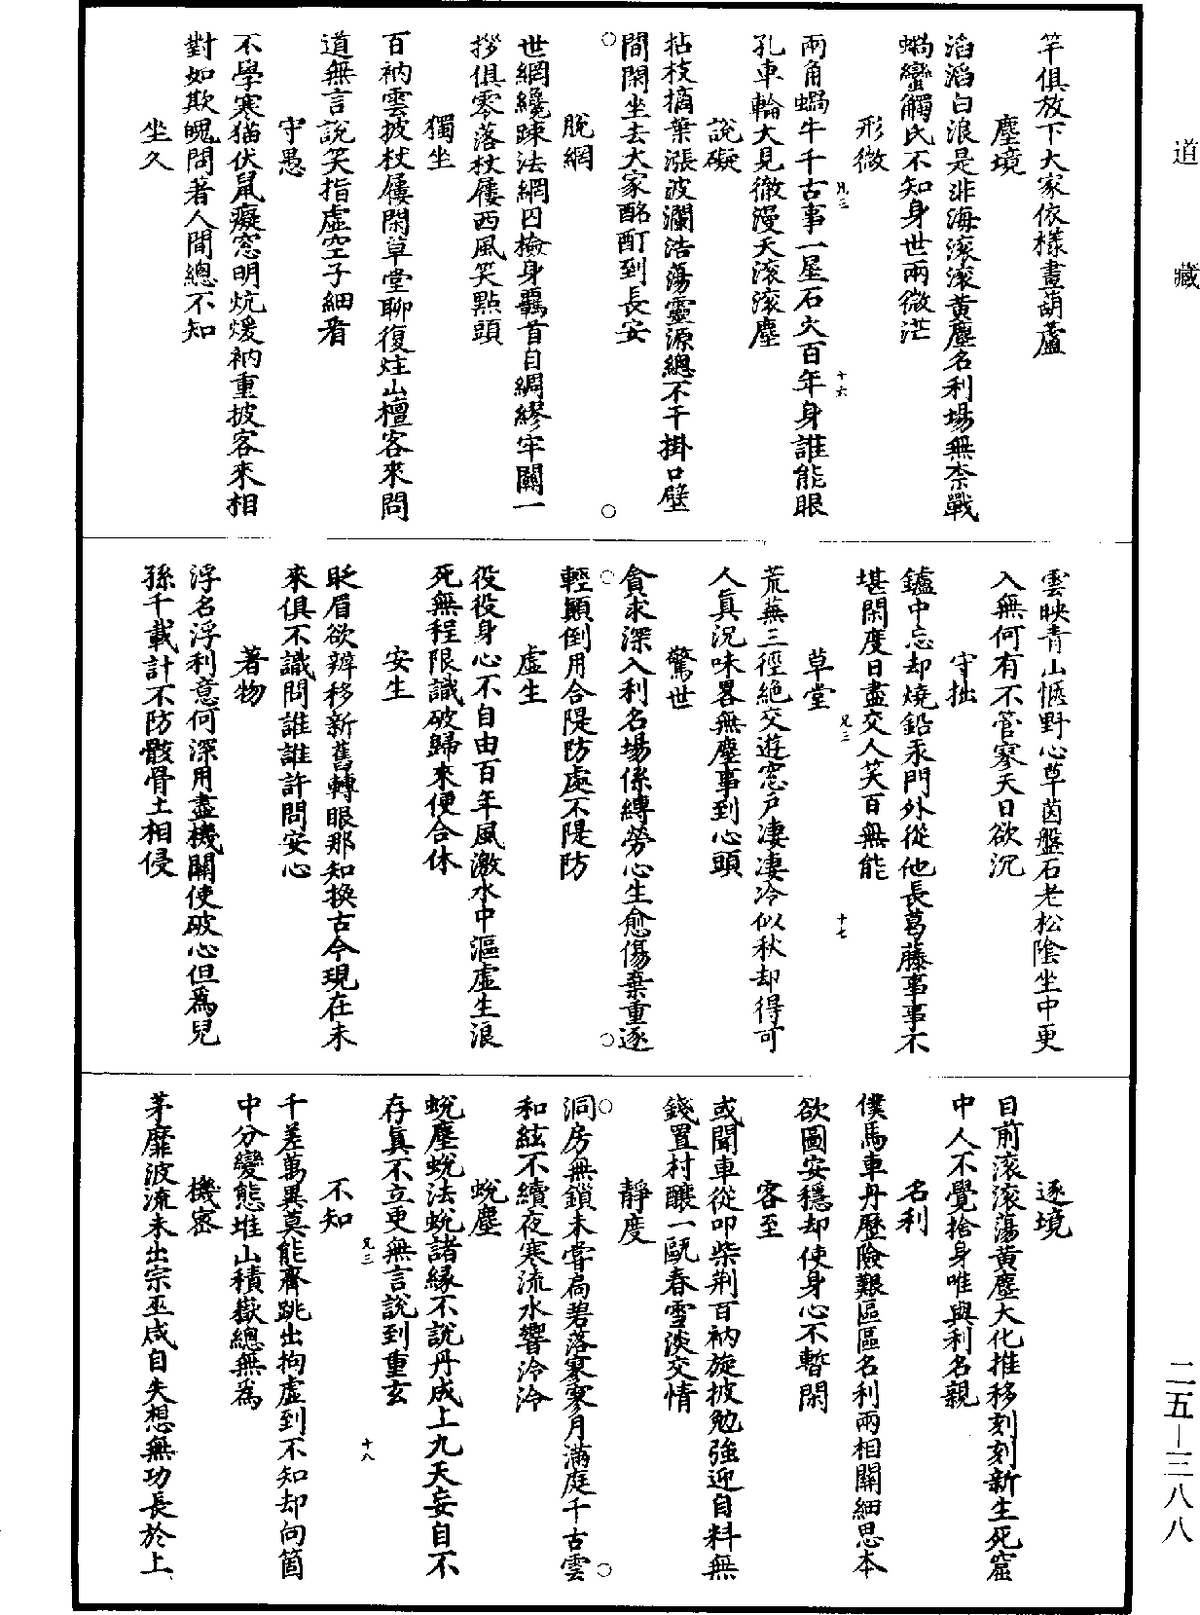 道藏
竿俱放下大家依樣畫葫蘆
塵境
滔滔白浪是非海滚滚黃塵名利場無柰戰
蝸蠻觸氏不知身世兩微茫
形微
兩角蝸牛千古事一星石火百年身誰能眼
孔車輪大見徹漫天滚滚塵
說礙
拈枝摘葉漲波瀾浩蕩靈源總不干掛口壁
間閑坐去大家酩酊到長安
脫網
世網纔踈法網囚撿身羈首自綢繆牢關一
拶俱零落杖屨西風笑點頭
獨坐
百衲雲披杖屨閑草堂聊復炷山檀客來問
道無言說笑指虛空子細看
守愚
不學寒猫伏鼠癡窓明炕煖衲重披客來相
對如欺魄問著人間總不知
坐久
雲映青山愜野心草茵盤石老松陰坐中更
入無何有不管寥天日欲沉
守拙
鑪中忘却燒鉛汞門外從他長葛藤事事不
堪閑度日盡交人笑百無能
草堂
荒蕪三徑絕交遊窓户淒淒冷似秋却得可
人真況味畧無塵事到心頭
驚世
貪求深入利名場係縛勞心生愈傷棄重逐
輕顛倒用合隄防處不隄防
虛生
役役身心不自由百年風激水中漚虛生浪
死無程限識破歸來便合休
安生
眨眉欲辨移新舊轉眼那知換古今現在未
來俱不識問誰誰許問安心
著物
浮名浮利意何深用盡機關使破心但爲兒
孫千載計不防骸骨土相侵
逐境
目前滚滚蕩黃塵大化推移刻刻新生死窟
中人不覺捨身唯與利名親
名利
僕馬車丹歷險艱區區名利兩相關細思本
欲圖安穩却使身心不暫閑
客至
或聞車從叩柴荆百衲旋披勉強迎自料無
錢置村釀一甌春雪淡交情
靜度
洞房無鎖未嘗扃碧落寥寥月滿庭千古雲
和絃不續夜寒流水響泠泠
蛻塵
蛻塵蛻法蛻諸緣不說丹成上九天妄自不
存真不立更無言說到重玄
不知
千差萬異莫能齊跳出拘虛到不知却向箇
中分變態堆山積嶽總無爲
機密
茅靡波流未出宗巫咸自失想無功長於上
兄三
十六
兄三
十七
兄三
十八
二五—三八八